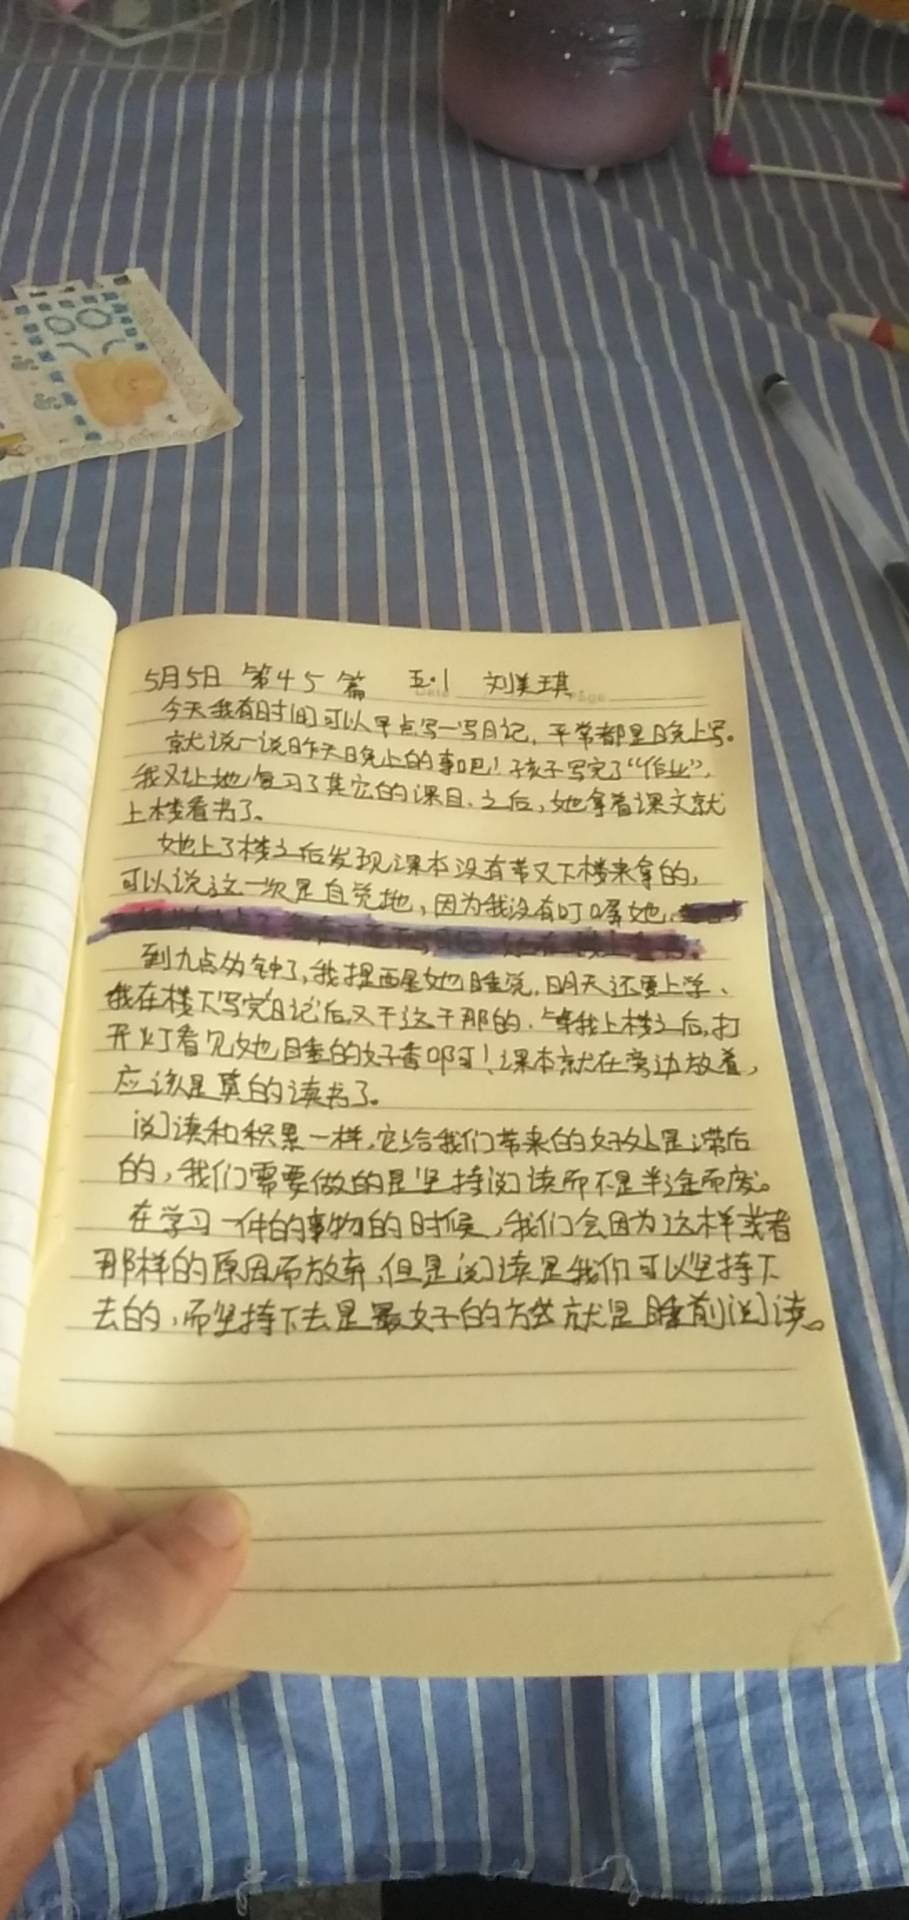 5月5日 第45篇 五.1 刘美琪
今天我有时间可以早点写一写日记,平常都是晚上写。
就说一说昨天晚上的事吧!孩子写完了“作业”,
我又让她复习了其它的课目.之后,她拿着课文就
上楼看书了。
她上了楼之后发现课本没有带又下楼来拿的,
可以说这一次是自觉地,因为我没有叮嘱她,
到九点分钟了,我提醒她睡觉,明天还要上学、
我在楼下写完日记后,又干这干那的.等我上楼之后,打
开灯看见她睡的好香啊!课本就在旁边放着,
应该是真的读书了。
阅读和积累一样,它给我们带来的好处是滞后
的,我们需要做的是坚持阅读而不是半途而废。
在学习一件的事物的时候,我们会因为这样或者
那样的原因而放弃,但是阅读是我们可以坚持下
去的,而坚持下去是最好的方法就是睡前阅读。